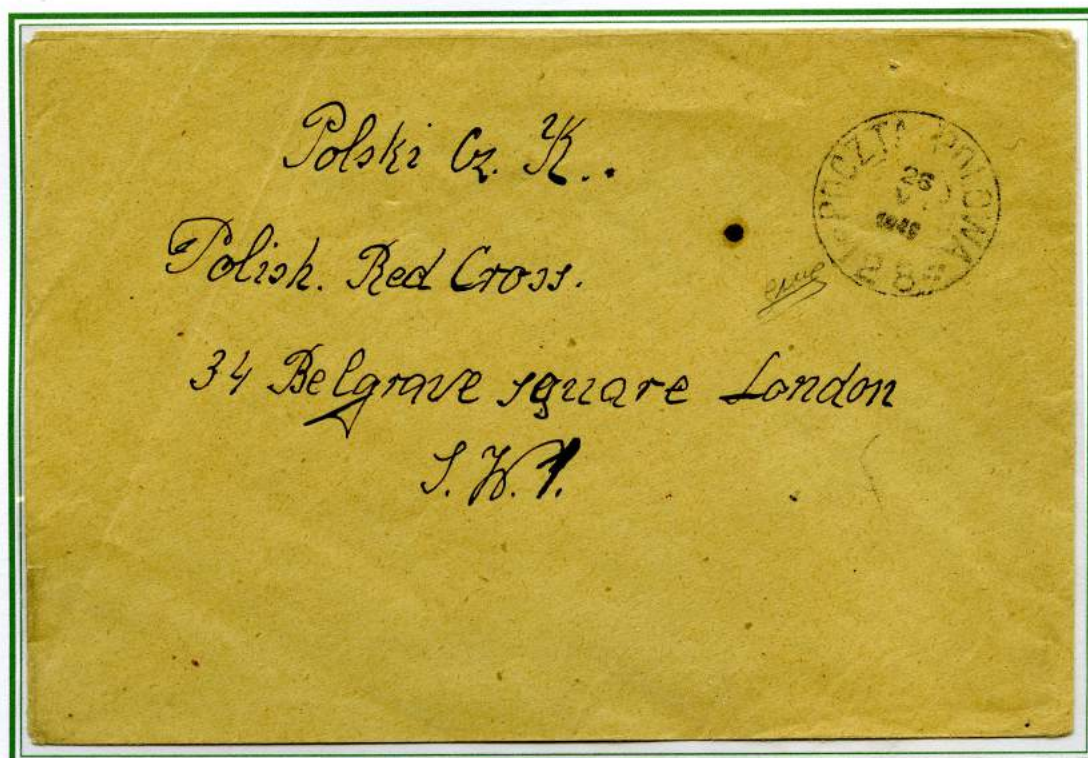 Polski Cz. K..
Polish. Red Cross.
34 Belgrave square London
S.W.1.
POCZTA POLOWA
26